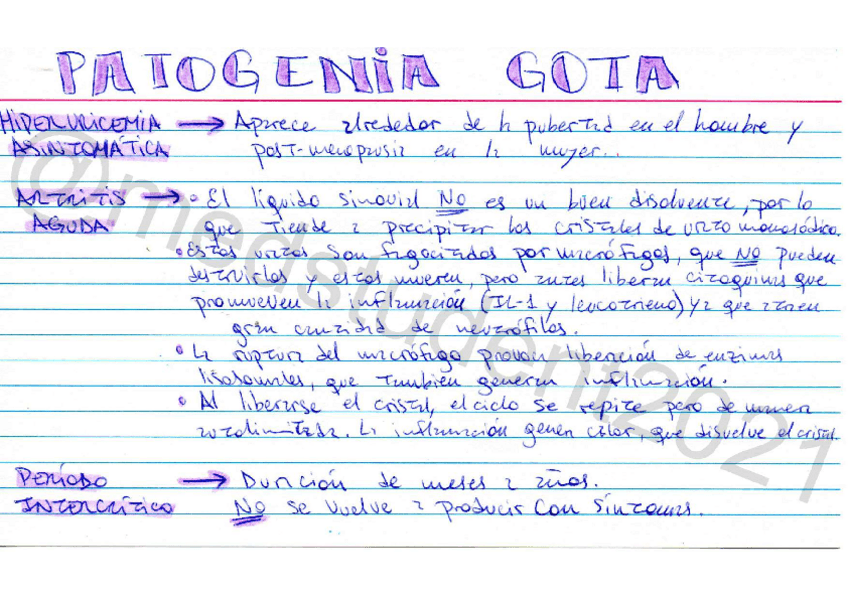 PATOGENIA GOTA
HIPERURICEMIA → Aparece alrededor de la pubertad en el hombre y
ASINTOMÁTICA post-menopausia en la mujer...
ARTRITIS → • El líquido sinovial NO es un buen disolvente, por lo
AGUDA que tiende a precipitar los cristales de urato monosódico.
• Estos uratos son fagocitados por macrófagos, que NO pueden
destruirlos y estos mueren, pero antes liberan citoquinas que
promueven la inflamación (IL-1 y leucotrieno) ya que atraen
gran cantidad de neutrófilos.
• La ruptura del macrófago provoca liberación de enzimas
lisosomales, que también generan inflamación.
• Al liberarse el cristal, el ciclo se repite pero de manera
autolimitada. La inflamación genera calor, que disuelve el cristal.
PERÍODO → Duración de meses a años.
INTERCRÍTICO NO se vuelve a producir con síntomas.
@medstudent2021